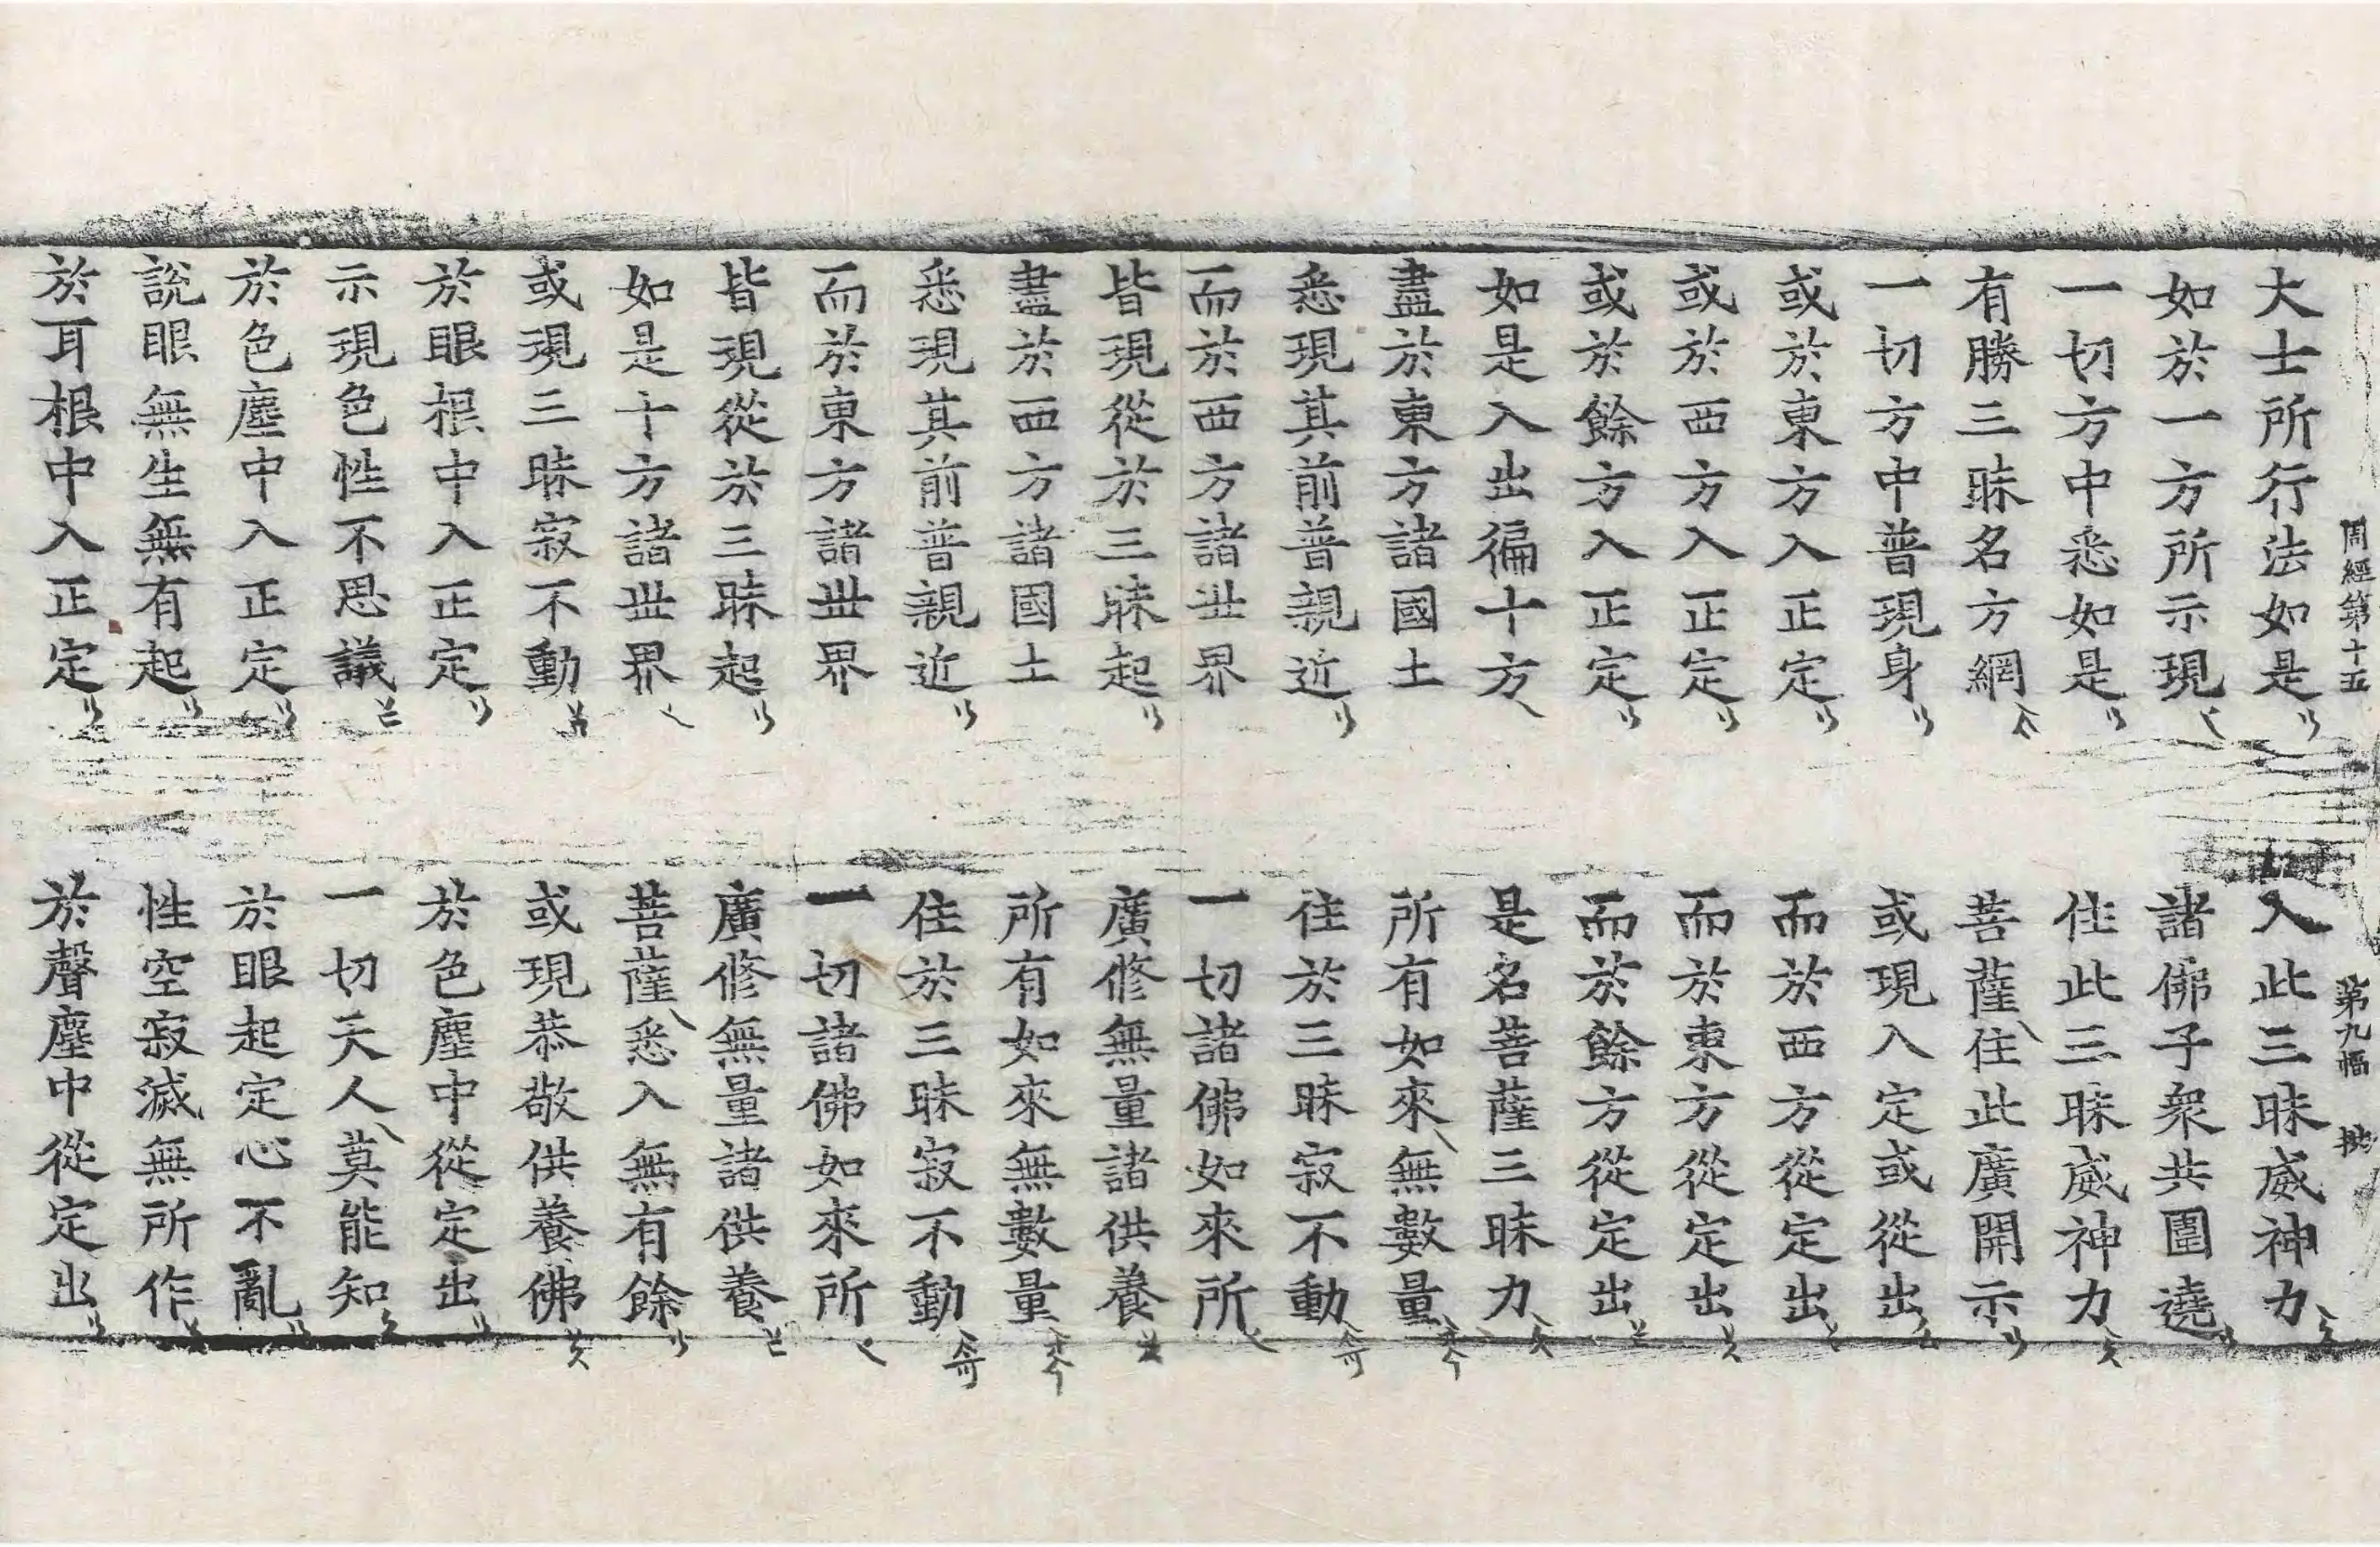 周經第十五 第九幅
大士所行法如是 入此三昧威神力
如於一方所示現 諸佛子衆共圍遶
一切方中悉如是 住此三昧威神力
有勝三昧名方網 菩薩住此廣開示
一切方中普現身 或現入定或從出
或於東方入正定 而於西方從定出
或於西方入正定 而於東方從定出
或於餘方入正定 而於餘方從定出
如是入出徧十方 是名菩薩三昧力
盡於東方諸國土 所有如來無數量
悉現其前普親近 住於三昧寂不動
而於西方諸世界 一切諸佛如來所
皆現從於三昧起 廣修無量諸供養
盡於西方諸國土 所有如來無數量
悉現其前普親近 住於三昧寂不動
而於東方諸世界 一切諸佛如來所
皆現從於三昧起 廣修無量諸供養
如是十方諸世界 菩薩悉入無有餘
或現三昧寂不動 或現恭敬供養佛
於眼根中入正定 於色塵中從定出
示現色性不思議 一切天人莫能知
於色塵中入正定 於眼起定心不亂
說眼無生無有起 性空寂滅無所作
於耳根中入正定 於聲塵中從定出